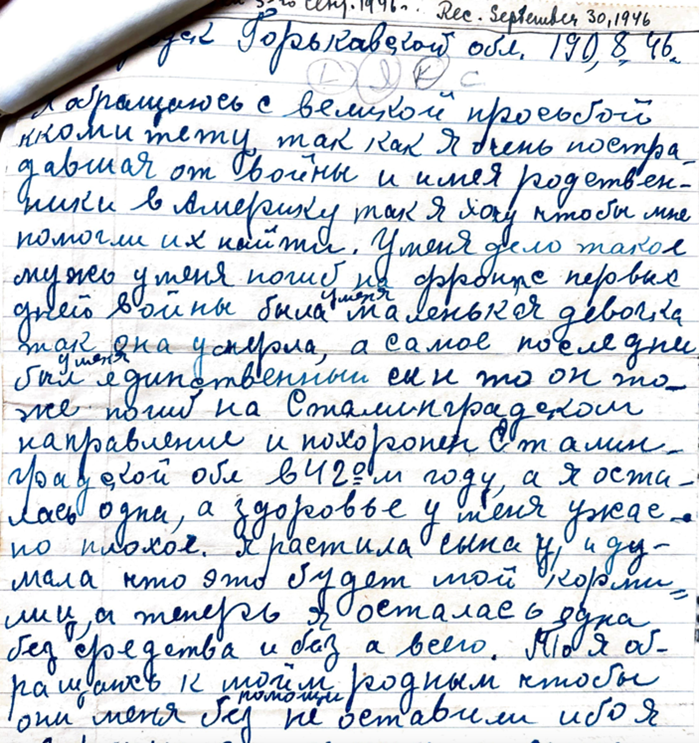 сент. 1946 г. Rec. September 30, 1946
Горькавской обл. 190, 8, 46.
С
Я обращаюсь с великой просьбой
ккомитету, так как я очень постра-
давшая от войны и имея родствен-
ники в Америку так я хочу чтобы мне
помогли их найти. Уменя дело такое
мужь уменя погиб на фронте с первых
дней войны была уменя маленькая девочка
так она умерла, а самое последни
был уменя единственный сын то он то-
же погиб на Сталинградском
направление и похоронен Сталин-
градской обл в 42ом году, а я оста-
лась одна, а здоровье у меня ужас-
но плохое. Я растила сына у, и ду-
мала что это будет мой корми=
лиц, а теперь я осталась одна
без средства и без а всего. То я об-
ращаюсь к моим родным чтобы
они меня без помощи не оставили ибо я